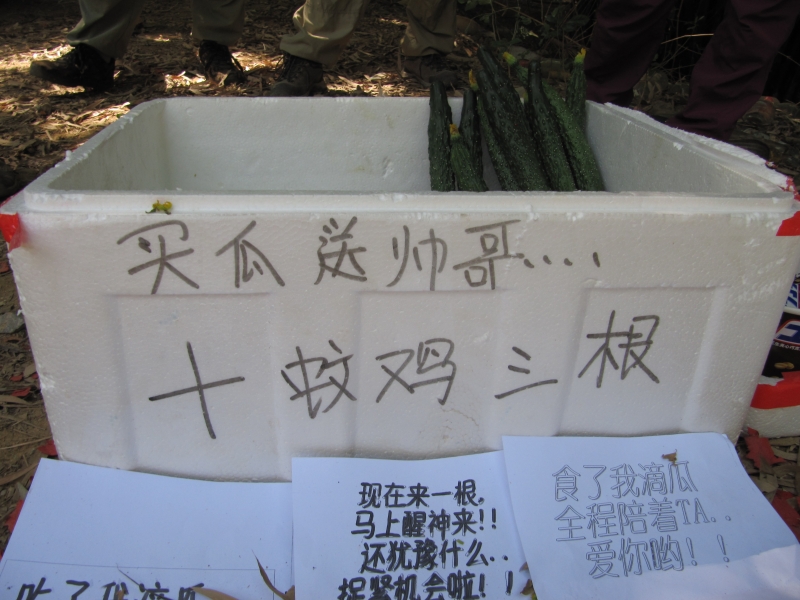 买瓜送帅哥....
十蚊鸡三根
吃了我滴瓜
现在来一根。
马上醒神来!!
还犹豫什么..
捉紧机会啦! !
食了我滴瓜
全程陪着TA..
爱你哟! !